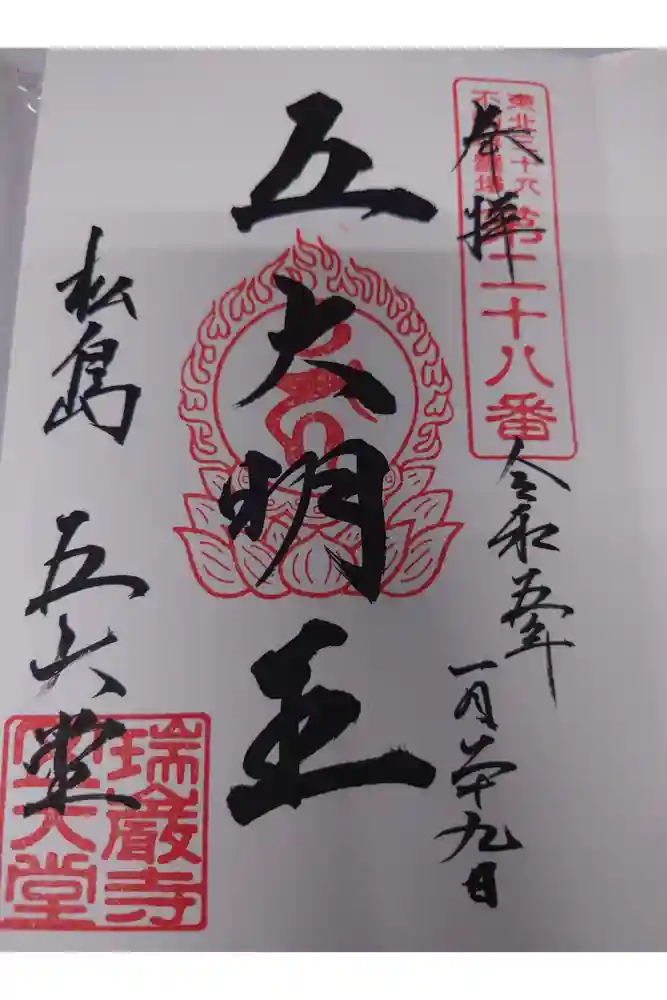 東北三十六
不動尊霊場
第二十八番
奉拝
令和五年
一月廿九日
五大明王
松島 五大堂
瑞巌寺
五大堂